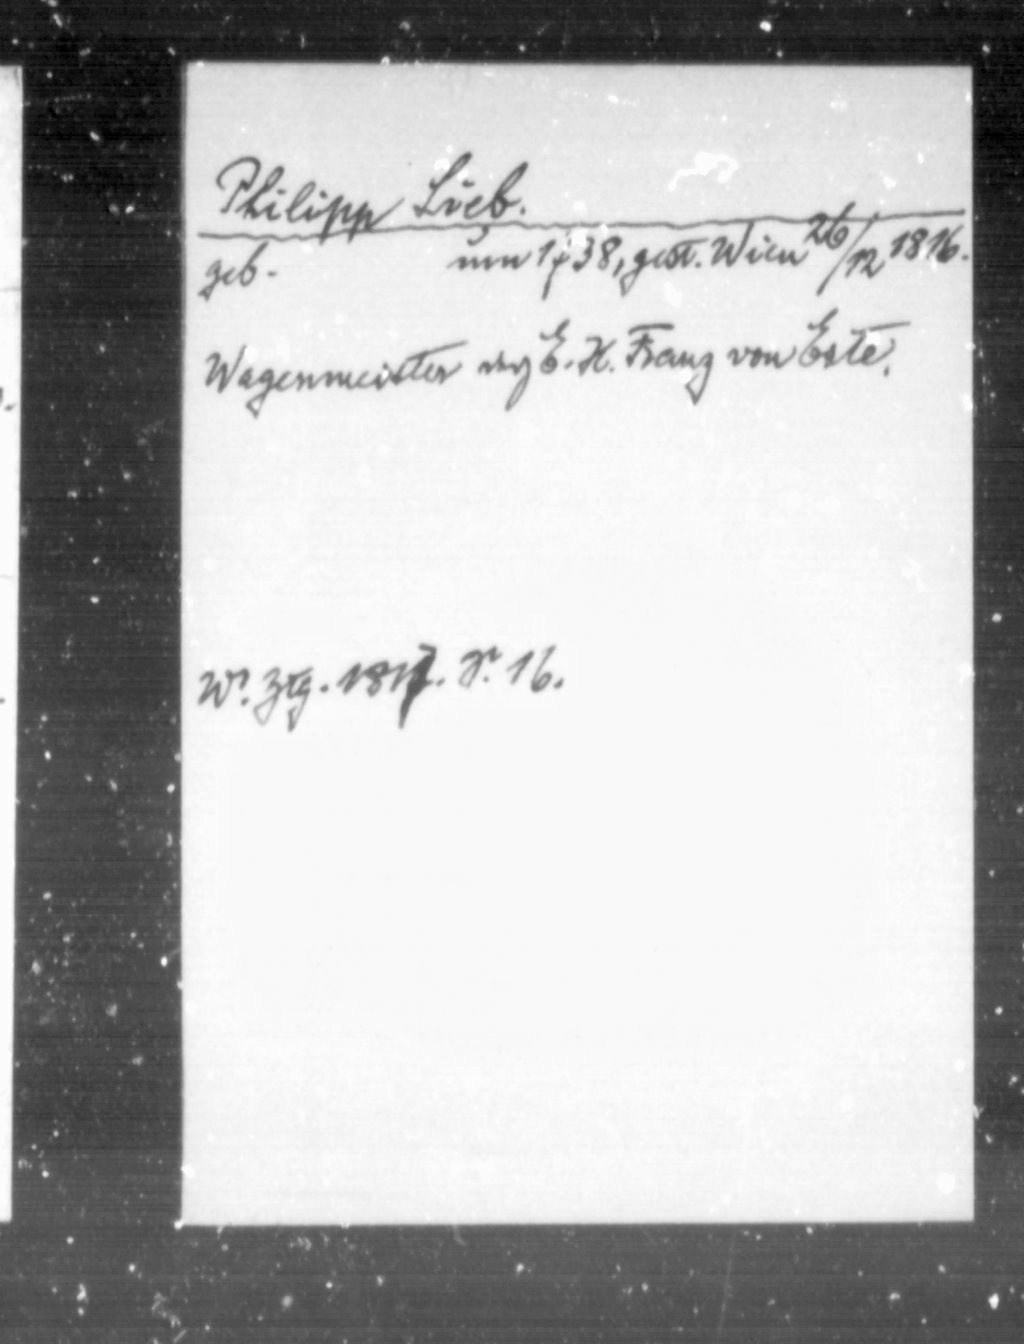 Philipp Lieb.
geb. um 1738, gest. Wien 26/12 1816.
Wagenmeister des E. H. Franz von Este.
Wr. Ztg. 1817. Nr. 16.